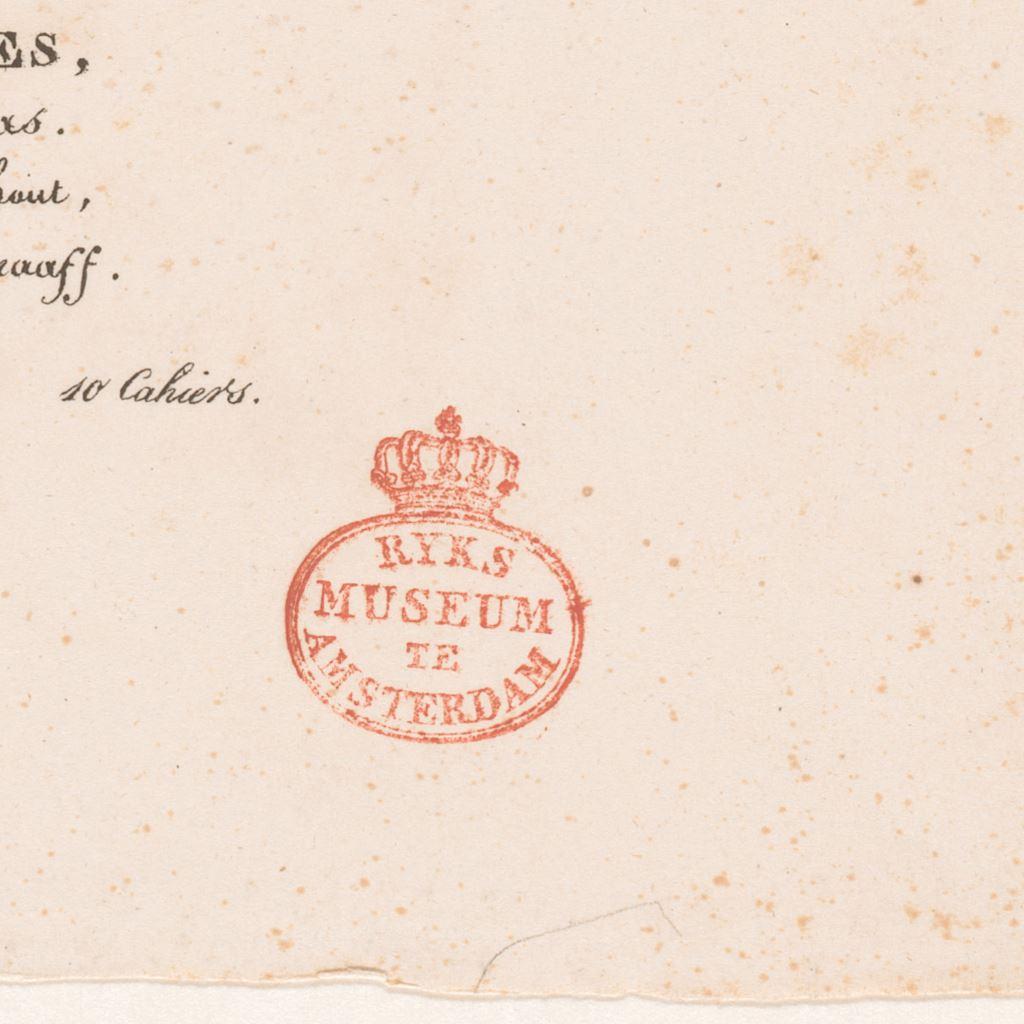 ES,
as.
hout,
raaff.
10 Cahiers.
RYKS
MUSEUM
TE
AMSTERDAM